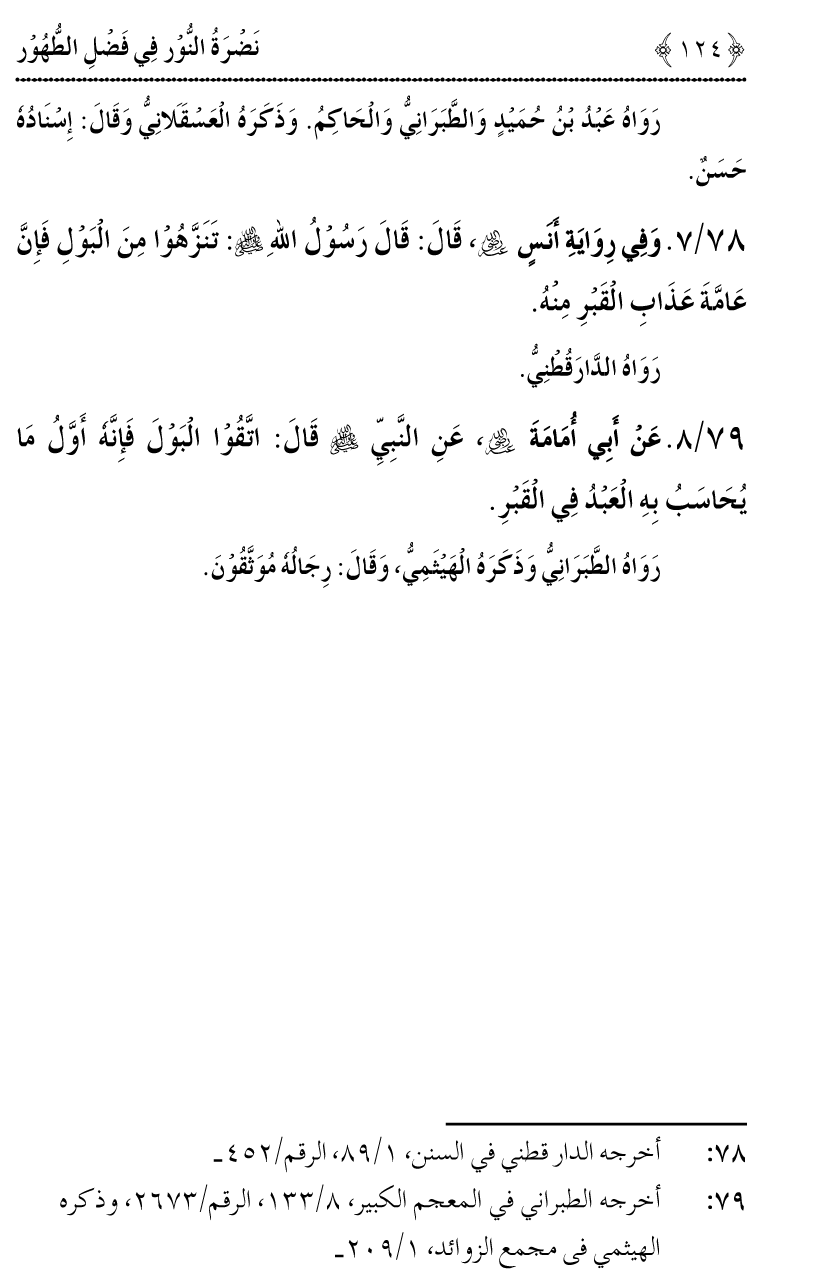 ﴿١٢٤﴾ نَضْرَةُ النُّوْر فِي فَضْلِ الطُّهُوْر
رَوَاهُ عَبْدُ بْنُ حُمَيْدٍ وَالطَّبَرَانِيُّ وَالْحَاكِمُ. وَذَكَرَهُ الْعَسْقَلَانِيُّ وَقَالَ: إِسْنَادُهُ
حَسَنٌ.
٧/٧٨. وَفِي رِوَايَةِ أَنَسٍ رضي الله عنه، قَالَ: قَالَ رَسُوْلُ اللهِ ﷺ: تَنَزَّهُوْا مِنَ الْبَوْلِ فَإِنَّ
عَامَّةَ عَذَابِ الْقَبْرِ مِنْهُ.
رَوَاهُ الدَّارَقُطْنِيُّ.
٨/٧٩. عَنْ أَبِي أُمَامَةَ رضي الله عنه، عَنِ النَّبِيِّ ﷺ قَالَ: اتَّقُوْا الْبَوْلَ فَإِنَّهُ أَوَّلُ مَا
يُحَاسَبُ بِهِ الْعَبْدُ فِي الْقَبْرِ.
رَوَاهُ الطَّبَرَانِيُّ وَذَكَرَهُ الْهَيْثَمِيُّ، وَقَالَ: رِجَالُهُ مُوَثَّقُوْنَ.
٧٨: أخرجه الدار قطني في السنن، ٨٩/١، الرقم/٤٥٢ـ
٧٩: أخرجه الطبراني في المعجم الكبير، ١٣٣/٨، الرقم/٢٦٧٣، وذكره
الهيثمي في مجمع الزوائد، ٢٠٩/١ـ